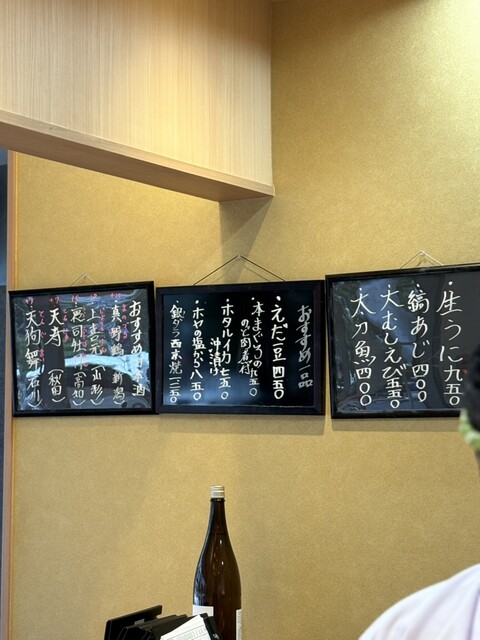 ・生うに 九五〇
・縞あじ 四〇〇
・大むしえび 五五〇
・太刀魚 四〇〇
おすすめ一品
・えだ豆 四五〇
・本まぐろの
・ホタルイカ 七五〇
沖漬け
・ホヤの塩から 八五〇
・銀ダラ西京焼 一二五〇
おすすめ
酒
(新潟)
(山形)
(高知)
天寿 (秋田)
天狗舞 (石川)